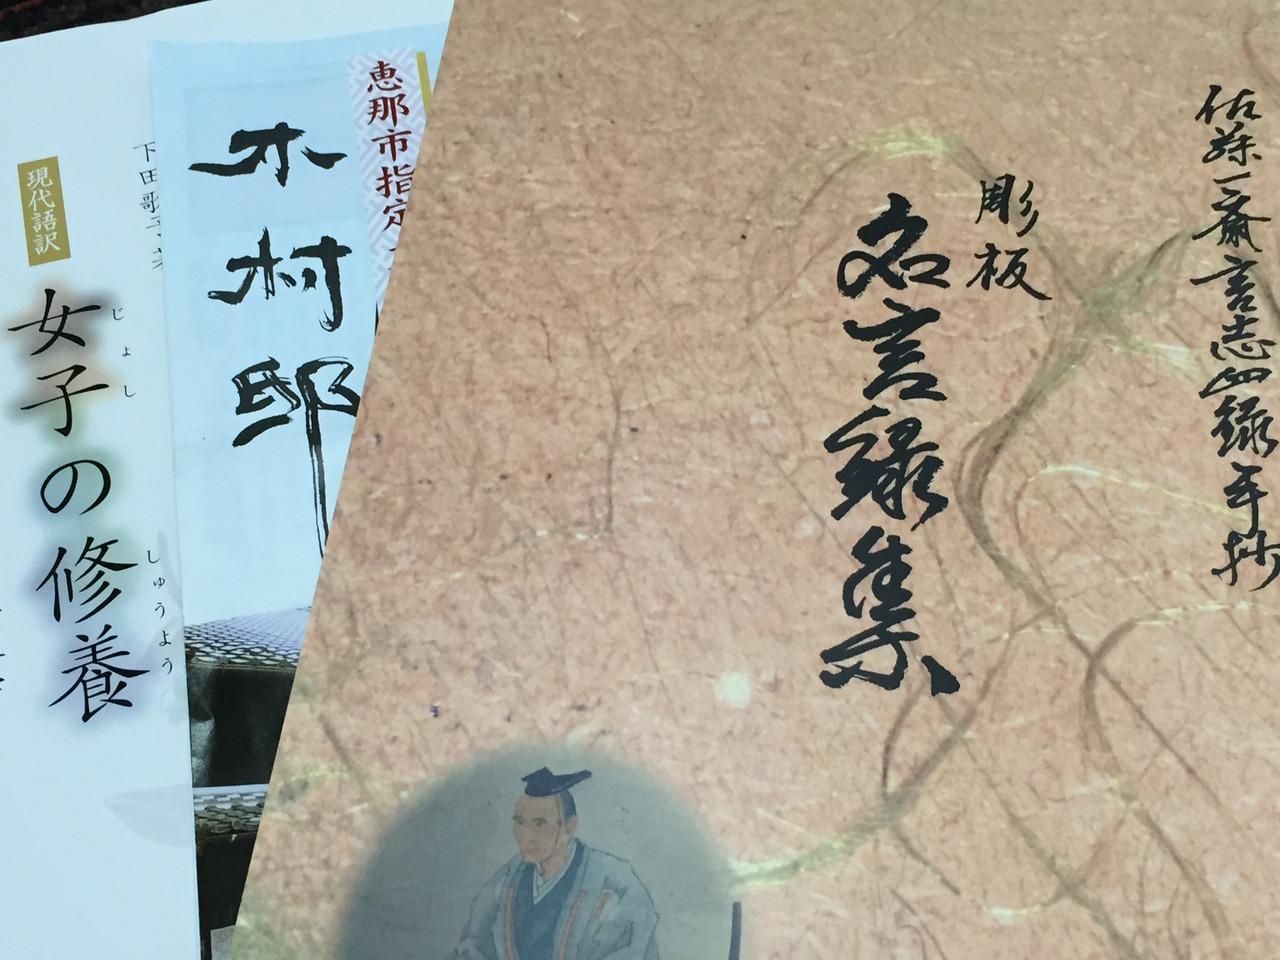 佐藤一斎言志四録手抄
彫板
名言録集
恵那市指定
木村邸
下田歌子
現代語訳
女子の修養
じょし
しゅうよう